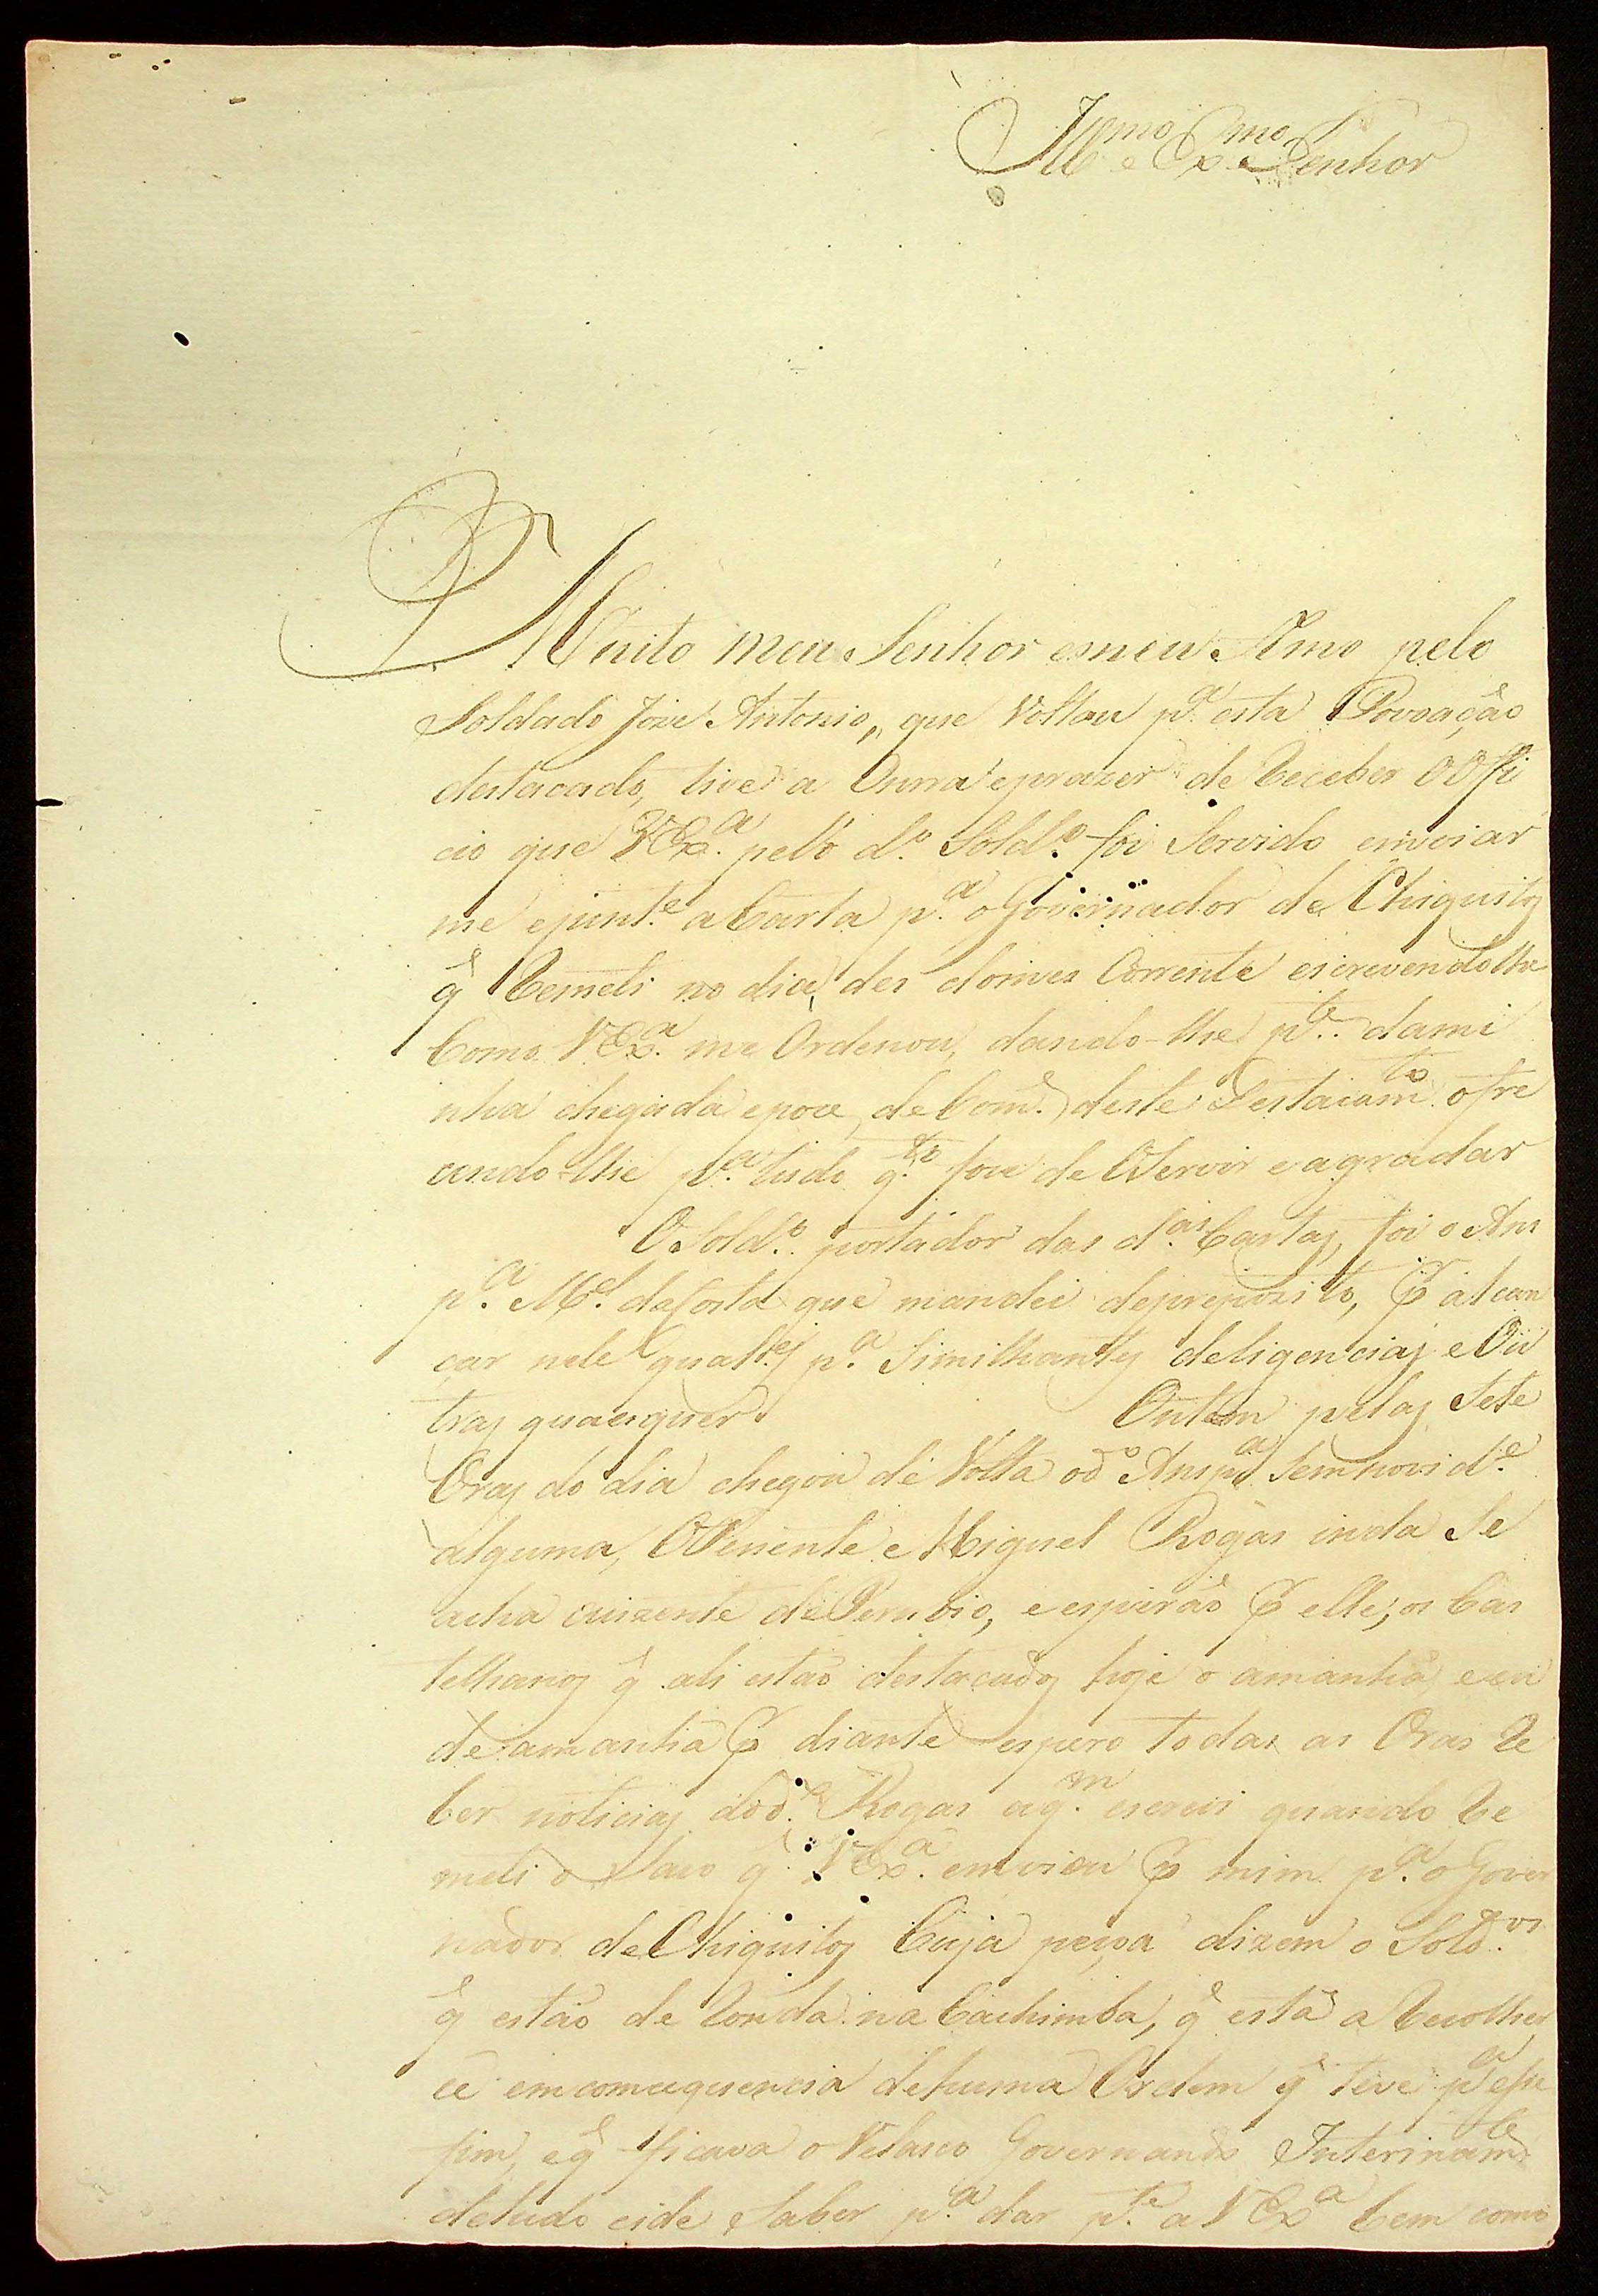 Ill.mo e Ex.mo Senhor
Muito meu Senhor e meu Amo pelo
Soldado Joze Antonio, que Voltou p.a esta Povoação
destacado, tive a Onrra e prazer de Receber o Offi
cio que V Ex.a pello d.o Sold.o foi Servido enviar
me e junt.e a Carta p.a o Governador de Chiquitos
q̃ Remeti no dia des do mes Corrente escrevendo lhe
Como V Ex.a me Ordenou, dando-lhe p.te da mi
nha chegada e poce de Com.e deste Destacam.to ofre
cendo-lhe p.a tudo q.to foce de O Servir e agradar
O Sold.o portador das d.as Cartas, foi o Ans
p.a M.el da Costa que mandei de prepozito, p.r alcan
çar nele qualid.es p.a Similhantes deligencias e Ou
tras quaesquer. Ontem pelas Sete
Oras do dia chegou de Volta o d.o Ansp.a Sem novid.e
alguma, O Tenente Miguel Rogas inda Se
acha auzente de Pernbio, e esperão p.r elle, os Cas
telhanos q̃ ali estão destacados hoje o amanhã, e eu
de amanhã p.r diante espero todas as Oras Re
ber noticias do d.o Rogas a q.m escrevi quando Re
meti o Saco q̃ V Ex.a enviou p.r mim p.a o Gover
nador de Chiquitos Cuja peçoa dizem o Sold.os
q̃ estão de Ronda na Cachimba, q̃ está a Recolher
ce em comcequencia de huma Ordem q̃ teve p.a esse
fim, e q̃ ficava o Velasco Governando Interinam.te
de tudo eide Saber p.a dar p.te a V Ex.a bem como